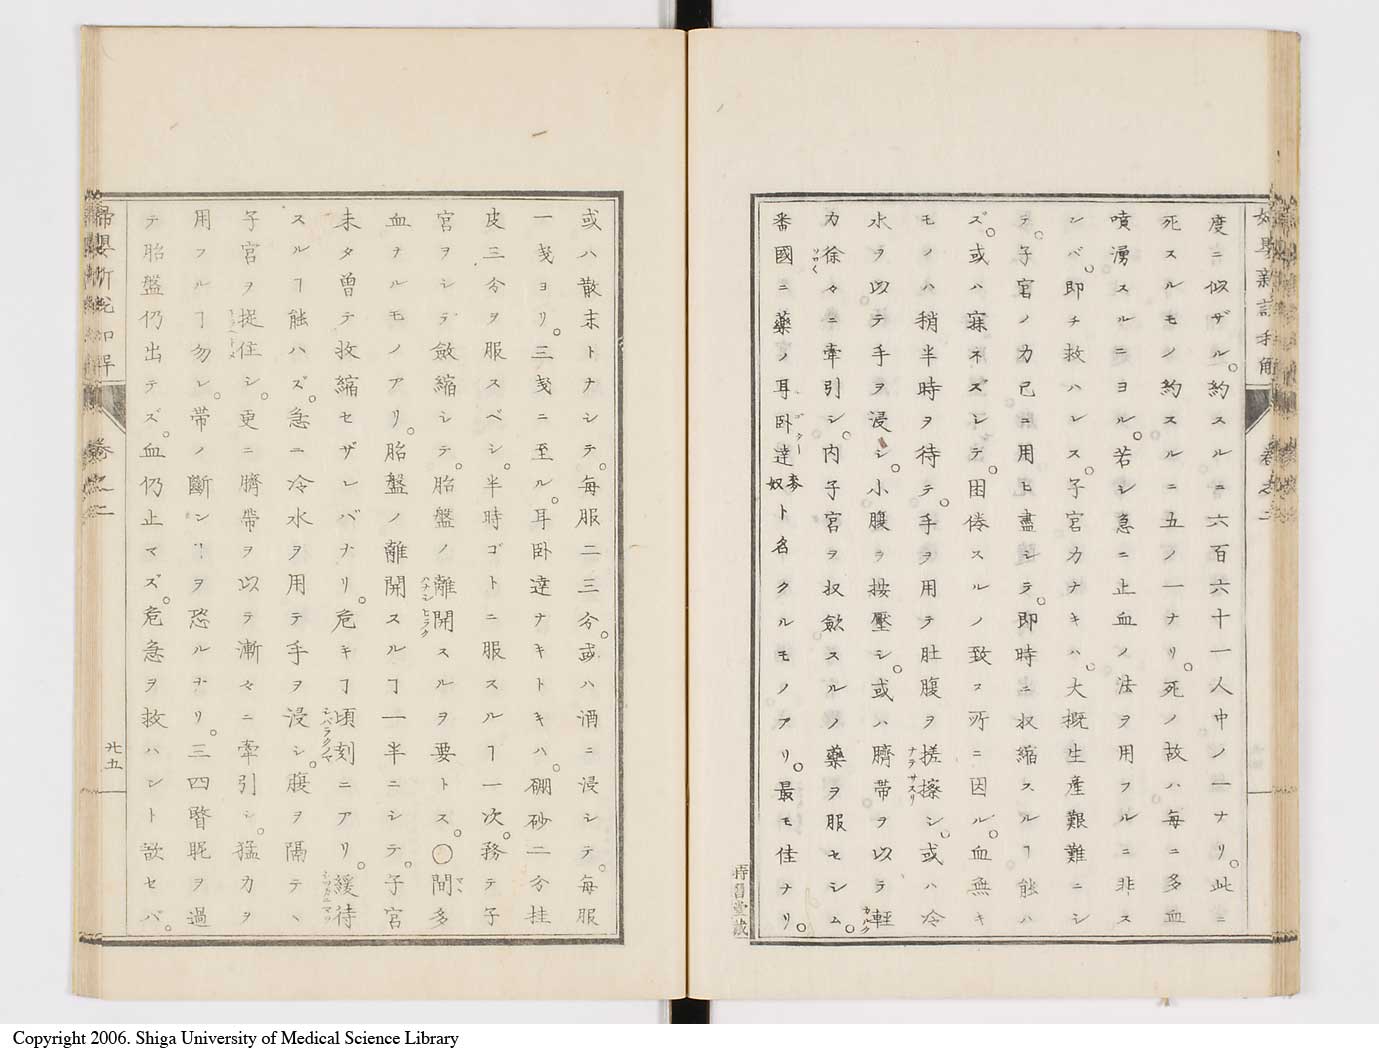 度ニ似ザル。約スルニ六百六十一人中ノ一ナリ。此ニ
死スルモノ約スルニ五ノ一ナリ。死ノ故ハ毎ニ多血
噴湧スルニヨル。若シ急ニ止血ノ法ヲ用フルニ非ス
ンバ。即チ救ハレス。子宮力ナキハ。大概生産艱難ニシ
テ。子宮ノ力已ニ用ヒ盡シテ。即時ニ収縮スルヿ能ハ
ズ。或ハ寐ネズシテ。困倦スルノ致ス所ニ因ル。血無キ
モノハ稍半時ヲ待テ。手ヲ用テ肚腹ヲ搓擦シ。或ハ冷
水ヲ以テ手ヲ浸シ。小腹ヲ按壓シ。或ハ臍帯ヲ以テ軽
力徐々ニ牽引シ。内子宮ヲ収斂スルノ藥ヲ服セシム。
番國ニ藥ノ耳卧達麥奴ト名クルモノアリ。最モ佳ナリ。
或ハ散末トナシテ。毎服二三分。或ハ酒ニ浸シテ。毎服
一戔ヨリ。三戔ニ至ル。耳卧達ナキトキハ。硼砂二分桂
皮三分ヲ服スベシ。半時ゴトニ服スルヿ一次。務テ子
宮ヲシテ斂縮シテ。胎盤ノ離開スルヲ要トス。〇間多
血ナルモノアリ。胎盤ノ離開スルヿ一半ニシテ。子宮
未タ曽テ收縮セザレバナリ。危キヿ頃刻ニアリ。緩待
スルヿ能ハズ。急ニ冷水ヲ用テ手ヲ浸シ。腹ヲ隔テヽ
子宮ヲ捉住シ。更ニ臍帯ヲ以テ漸々ニ牽引シ。猛力ヲ
用フルヿ勿レ。帯ノ斷ンヿヲ恐ルナリ。三四瞥眤ヲ過
テ胎盤仍出テズ。血仍止マズ。危急ヲ救ハント欲セバ。
卷之二
廿五